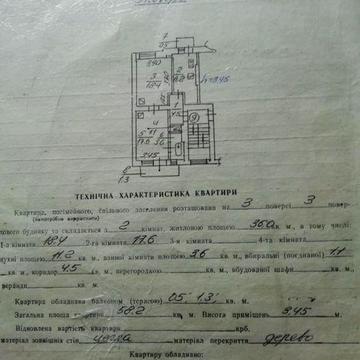 7
05
h=3.45
5.90
3
18.4
2
1
4.5
4
5
11.2
17.6
6
3.6
3.45
8
1.3
ТЕХНІЧНА ХАРАКТЕРИСТИКА КВАРТИРИ
Квартира, посімейного, спільного заселення розташована на 3 поверсі 3 повер-
(непотрібне викреслити)
хового будинку та складається з 2 кімнат, житловою площею 36.0 кв. м, в тому числі
1-а кімната 18.4 2-га кімната 17.6 3-я кімната 4-та кімната
кухні площею 11.2 кв. м, ванної кімнати 3.6 кв. м, вбиральні (поєднаної) 1.1
кв. м, коридор 4.5 кв. м, перегородкою кв. м, вбудованої шафи кв. м,
веранди кв. м.
Квартира обладнана балконом (терасою) 0.5, 1.3 кв. м.
Загальна площа квартири 58.2 кв. м. Висота приміщень 3.45 м.
Відновлена вартість квартири крб.
матеріал зовнішніх стін цегла матеріал перекриття дерево
Квартиру обладнано: